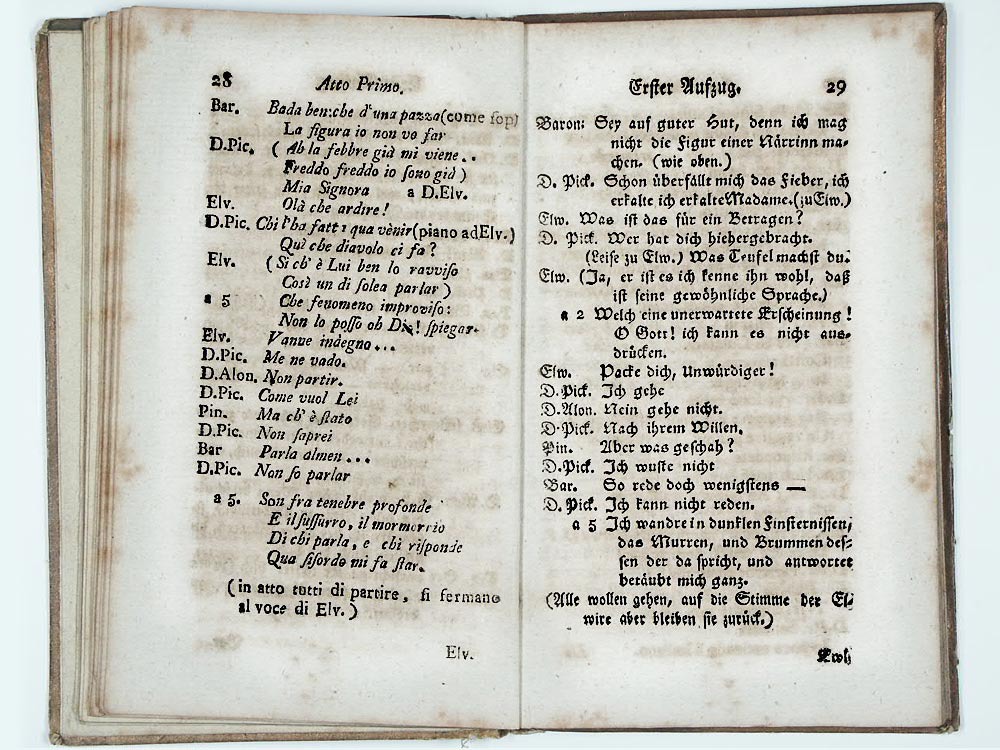 28 Atto Primo.
Bar. Bada ben: che d'una pazza (come sop)
La figura io non vo far
D.Pic. ( Ah la febbre già mi viene..
Freddo freddo io ſono già )
Mia Signora a D.Elv.
Elv. Olà che ardire!
D.Pic. Chi l'ha fatt i qua venir (piano ad Elv.)
Quì che diavolo ci fa?
Elv. (Si ch' è Lui ben lo ravviſo
Così un di ſolea parlar )
a 5 Che fenomeno improviſo:
Non lo poſſo oh Dio! ſpiegar.
Elv. Vanne indegno...
D.Pic. Me ne vado.
D.Alon. Non partir.
D.Pic. Come vuol Lei
Pin. Ma ch' è ſtato
D.Pic. Non ſaprei
Bar Parla almen...
D.Pic. Non ſo parlar
a 5. Son fra tenebre profonde
E il ſuſſurro, il mormorrio
Di chi parla, e chi riſponde
Qua ſiſordo mi fa ſtar.
(in atto tutti di partire, ſi fermano
al voce di Elv.)
Elv.
Erſter Aufzug. 29
Baron: Sey auf guter Hut, denn ich mag
nicht die Figur einer Närrinn ma-
chen. (wie oben.)
D. Pick. Schon überfällt mich das Fieber, ich
erkalte ich erkalte Madame. (zu Elw.)
Elw. Was iſt das für ein Betragen?
D. Pick. Wer hat dich hiehergebracht.
(Leiſe zu Elw.) Was Teufel machſt du.
Elw. (Ja, er iſt es ich kenne ihn wohl, daß
iſt ſeine gewöhnliche Sprache.)
a 2 Welch eine unerwartete Erſcheinung!
O Gott! ich kann es nicht aus-
drücken.
Elw. Packe dich, Unwürdiger!
D.Pick. Ich gehe
D.Alon. Nein gehe nicht.
D.Pick. Nach ihrem Willen.
Pin. Aber was geſchah?
D.Pick. Ich wuſte nicht
Bar. So rede doch wenigſtens —
D. Pick. Ich kann nicht reden.
a 5 Ich wandre in dunklen Finſterniſſen,
das Murren, und Brummen deſ-
ſen der da ſpricht, und antwortet
betäubt mich ganz.
(Alle wollen gehen, auf die Stimme der El-
wire aber bleiben ſie zurück.)